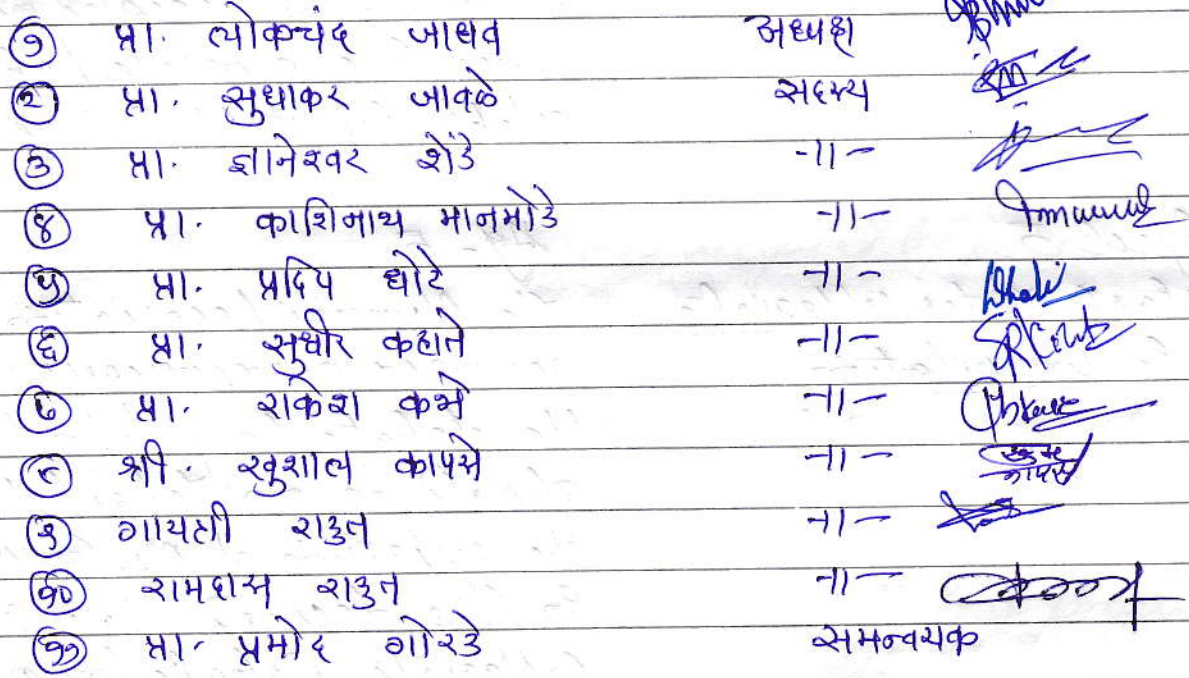 १ प्रा. त्योकचंद जाधव अध्यक्ष
२ प्रा. सुधाकर जावळे सदस्य
३ प्रा. ज्ञानेश्वर शेंडे -॥-
४ प्रा. काशिनाथ मानमोडे -॥-
५ प्रा. प्रदिप धोटे -॥-
६ प्रा. सुधीर कहाते -॥-
७ प्रा. राकेश कभे -॥-
८ श्री. खुशाल कापसे -॥-
९ गायत्री राऊत -॥-
१० रामदास राऊत -॥-
११ प्रा. प्रमोद गोरडे समन्वयक